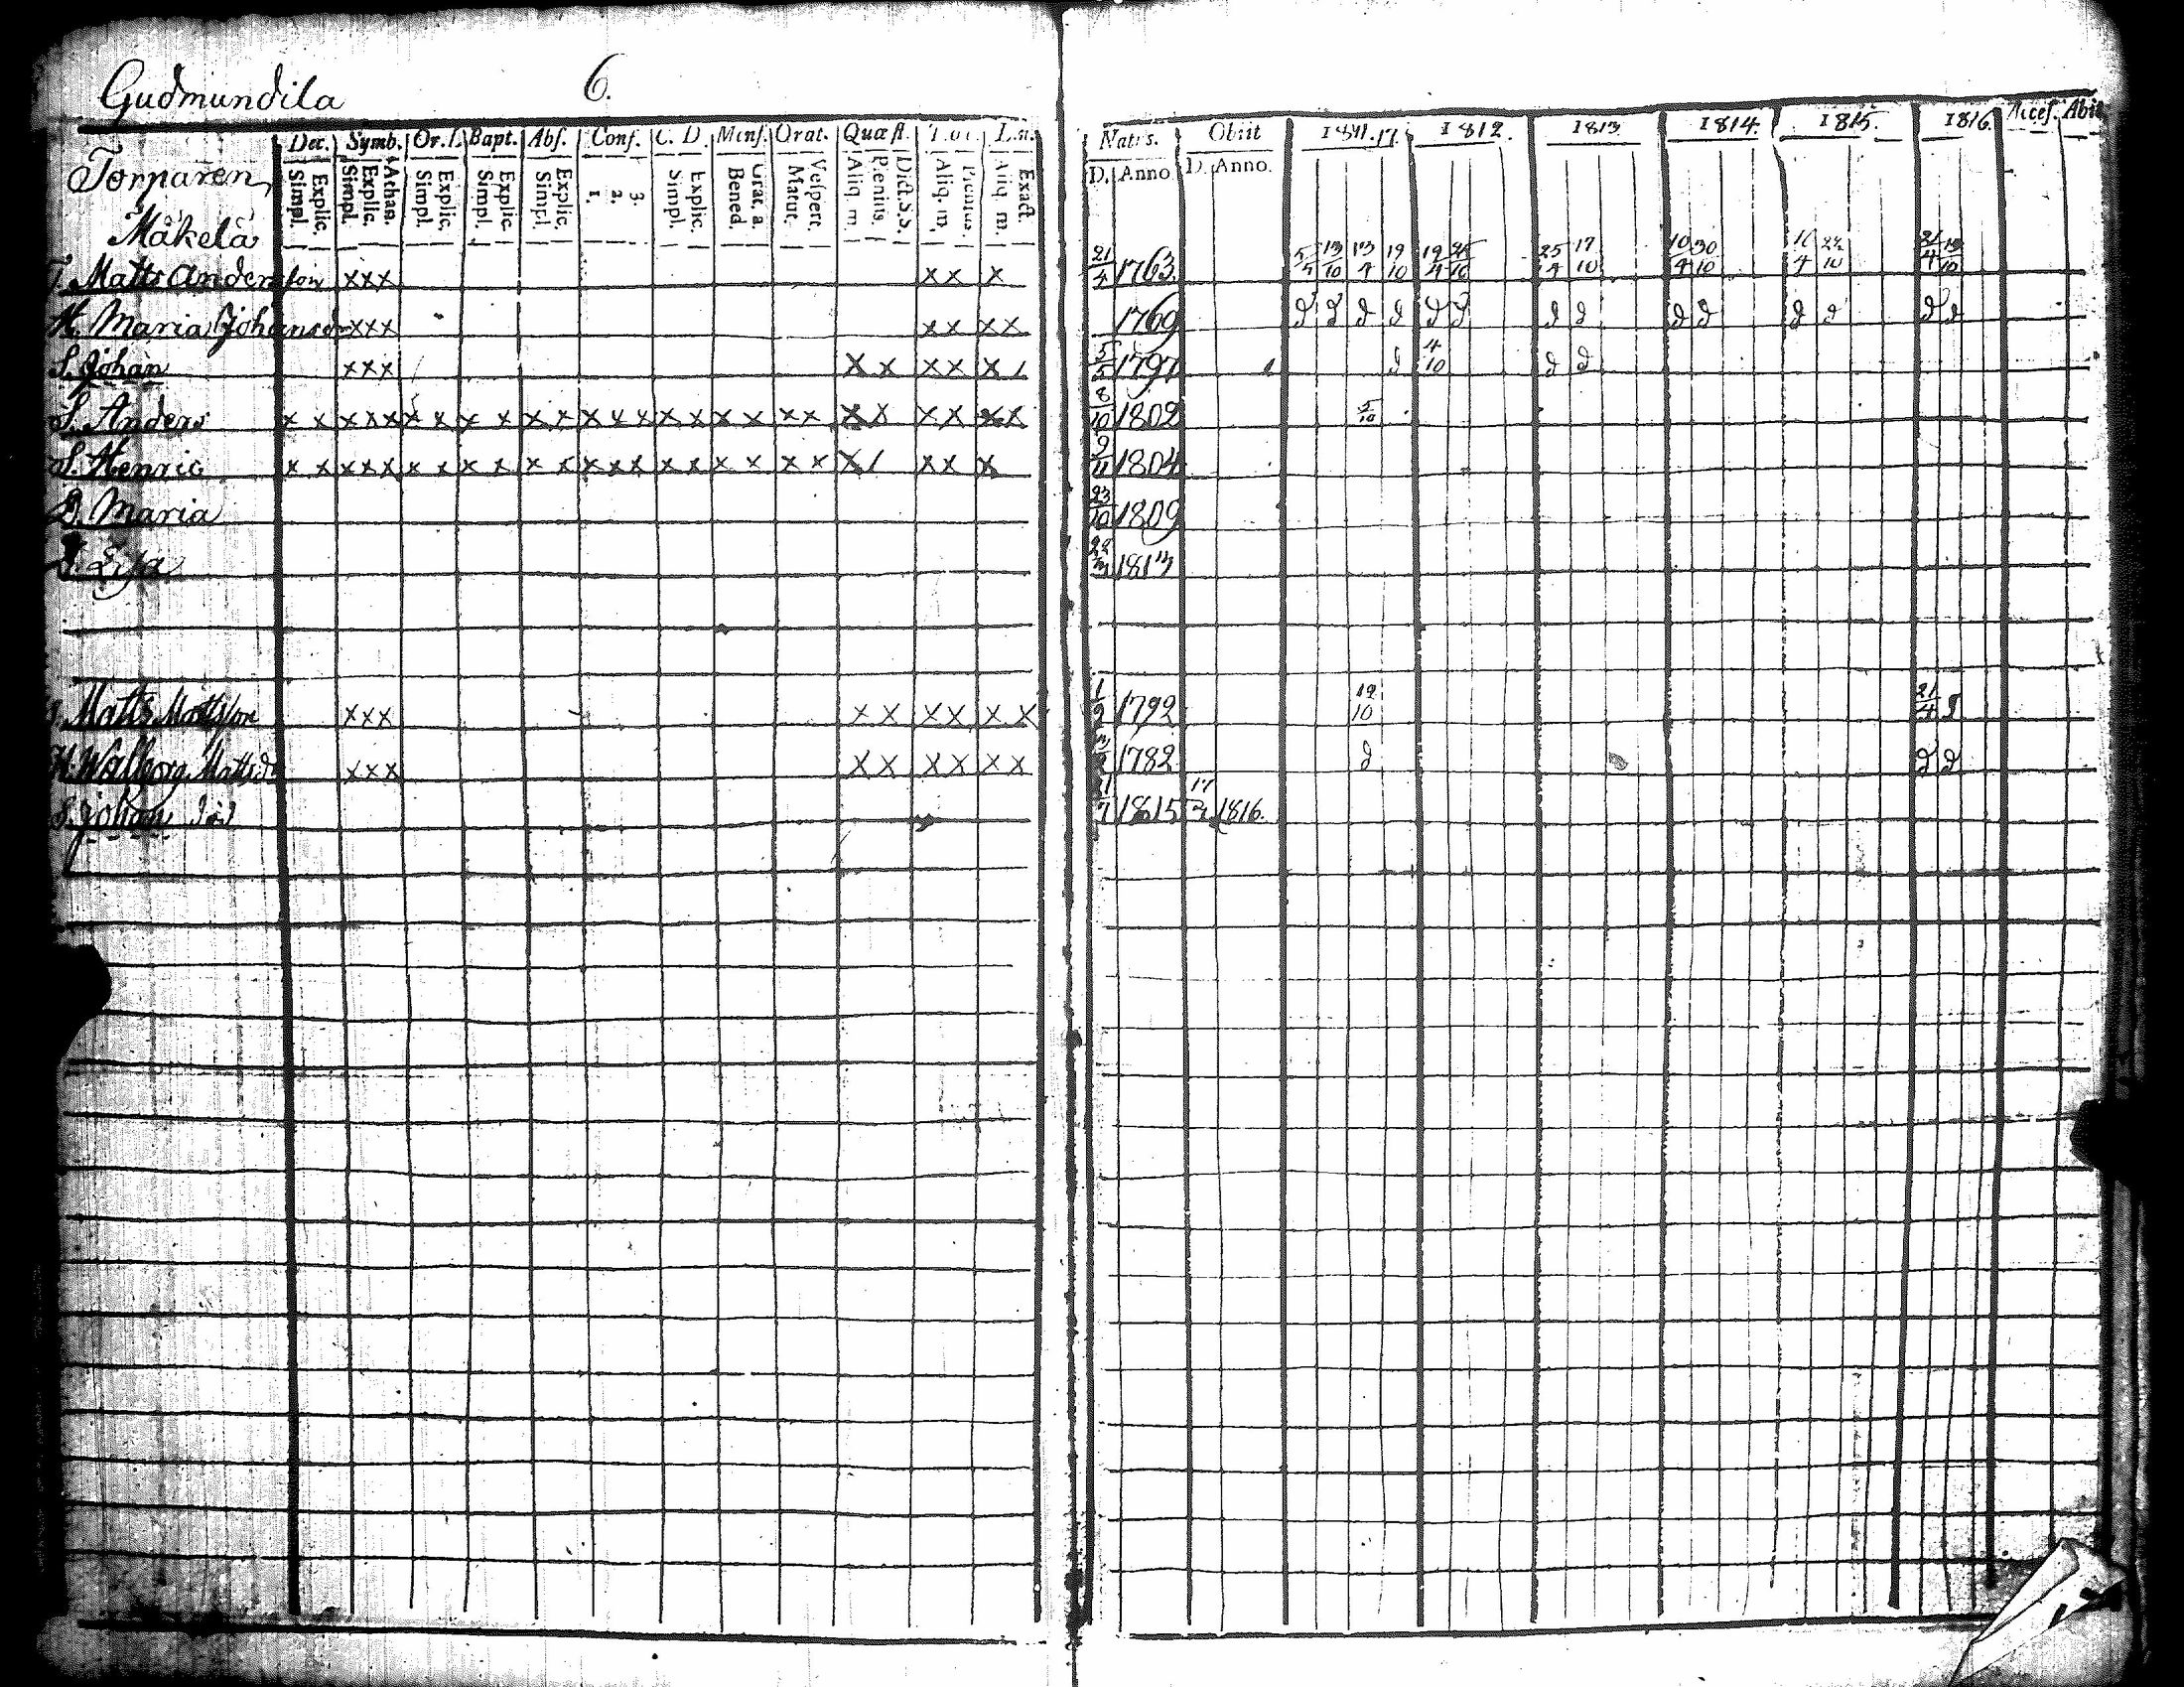 Gudmundila 6.
Dec. Symb. Or. Bapt. Abſ. Conf. C. D. Menſ. Orat. Quæſt. Natis. Obiit 1811. 17. 1812. 1813. 1814. 1815. 1816. Acceſ.
Torparen Simpl. Explic. Simpl. Explic. Athan. Simpl. Explic. Simpl. Explic. Simpl. Explic. 1. 2. 3. Simpl. Explic. Bened. Grat. a. Matut. Veſpert. Aliq. m. Plenius. Dict. S. S. Aliq. m. Plenius. Aliq. m. Exact. D. Anno D. Anno.
Mäkelä
T. Matts Andersſon xxx xx x 21/4 1763. 5/4 13/10 13/4 19/10 19/4 25/10 25/4 17/10 10/4 30/10 21/4 13/10
H. Maria Johansd xxx xx xx 1769 d d d d d d d d d d d d d d
S. Johan xxx x x xx x / 5/5 1797 d 4/10 d d
S. Anders x x xxx x x x x x x x x x x x x x x x x x x x x x x 8/10 1802 5/10
S. Henric x x xxx x x x x x x xxx x x x x x x x / xx x 9/11 1804
D. Maria 23/10 1809
D. Lisa 1813
Matts Mattsſon xxx x x xx x x 1/9 1792 19/10 21/4 d
H. Walborg Mattsd xxx xx xx xx 1782 d d d
S. Johan död 1815 1816.